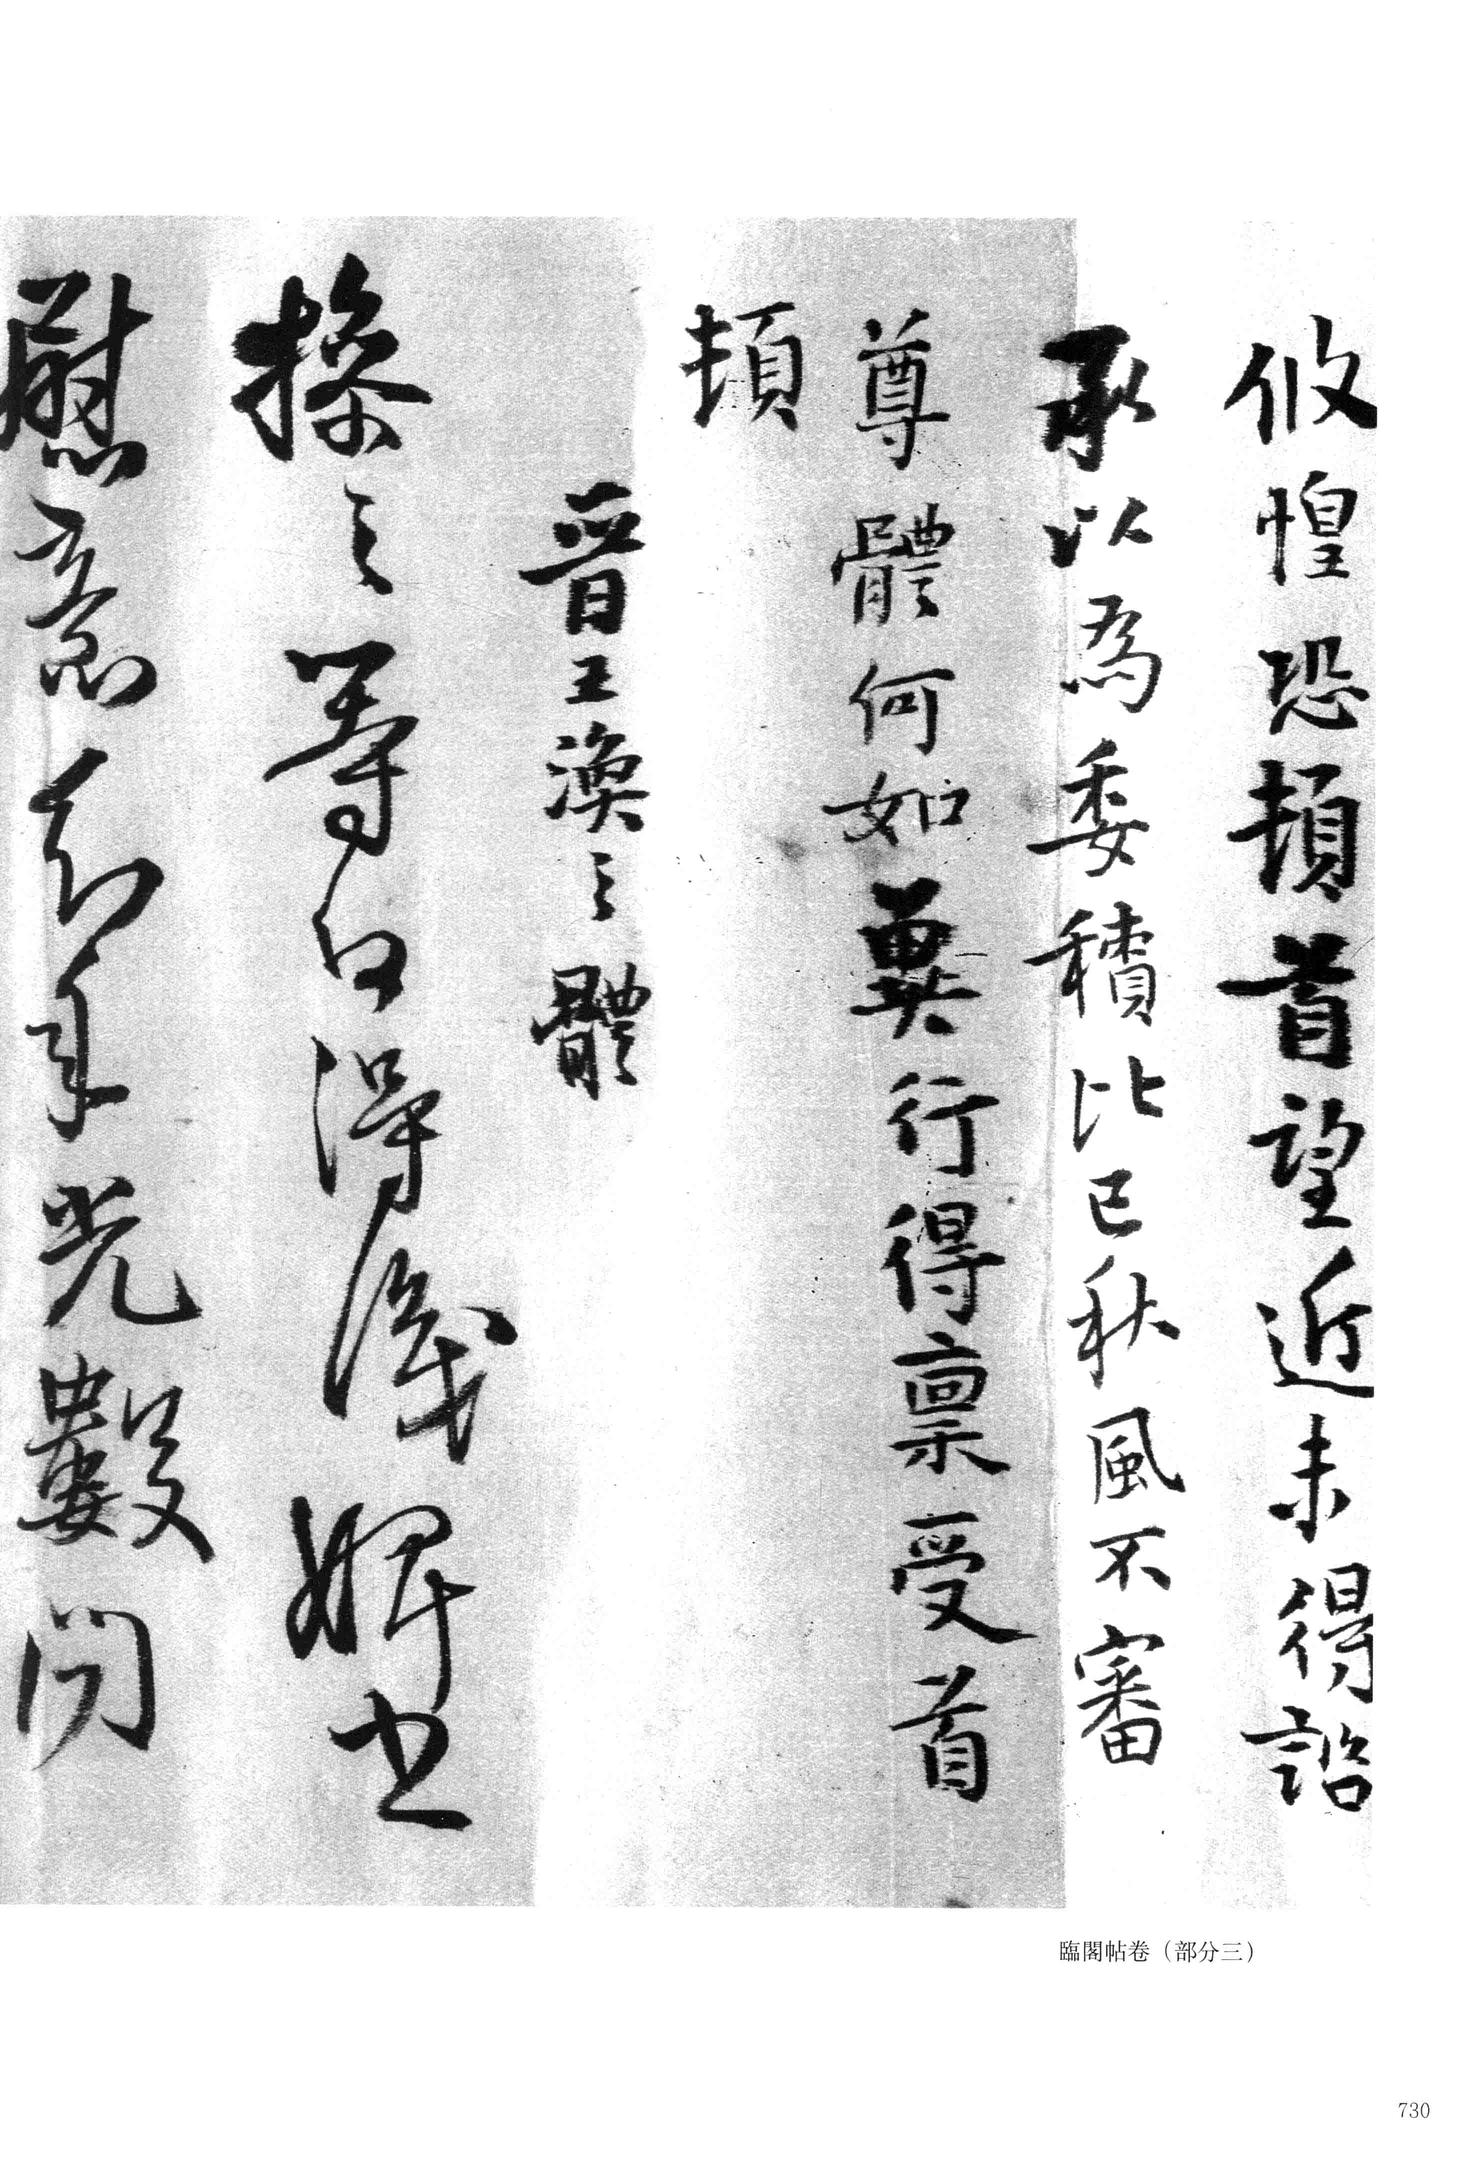 攸惶恐頓首望近未得詣
承以為委積比已秋風不審
尊體何如冀行得稟受首
頓
晉王渙之體
操之等白得識婢書
慰意知年光數閏
臨閣帖卷（部分三）
730